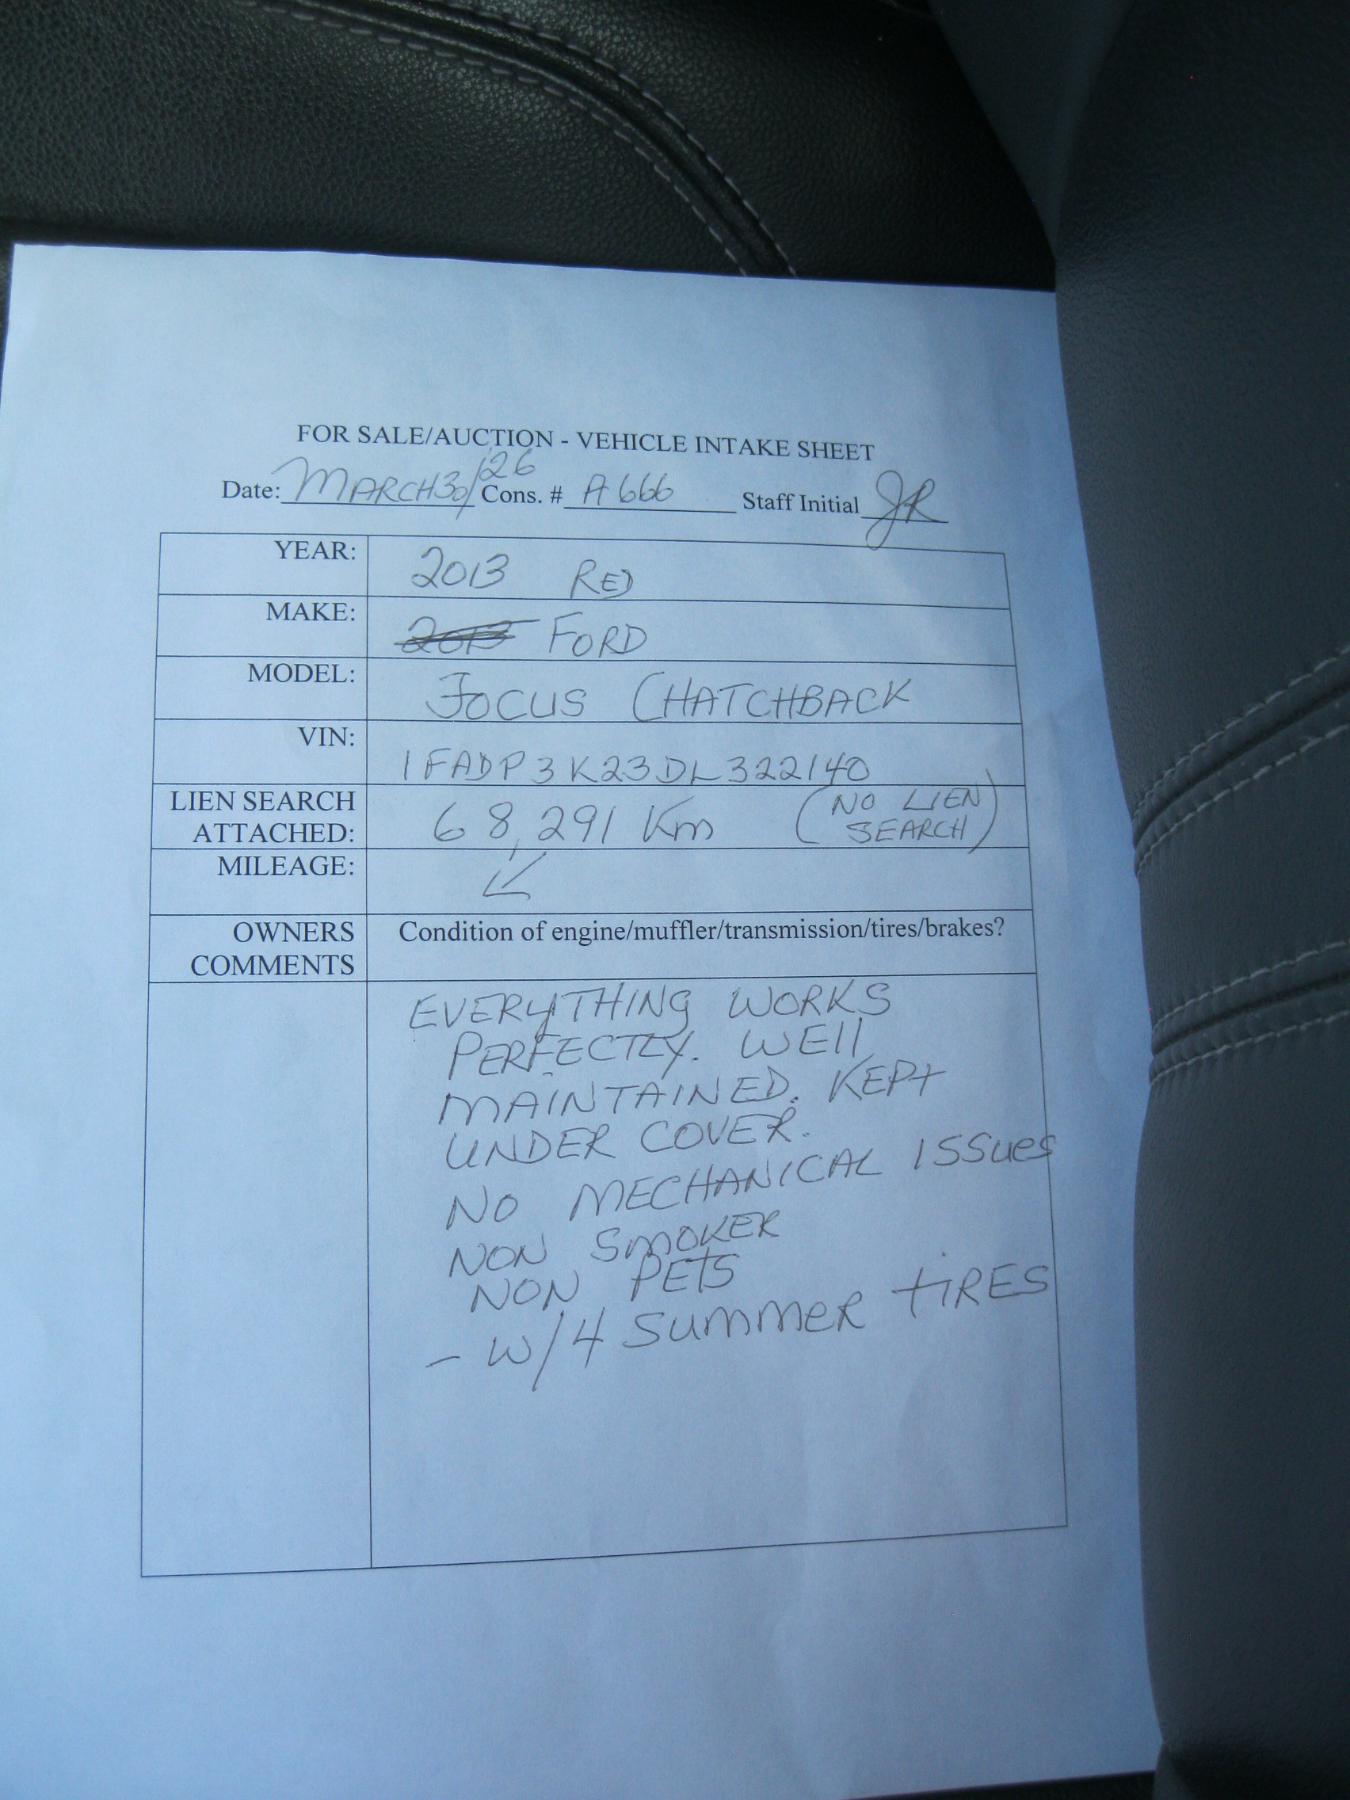 FOR SALE/AUCTION - VEHICLE INTAKE SHEET
Date: MARCH 30/26 Cons. # A666 Staff Initial JR
YEAR: 2013 RED
MAKE: 2013 FORD
MODEL: FOCUS (HATCHBACK
VIN: 1FADP3K23DL322140
LIEN SEARCH ATTACHED: 68,291 Km (NO LIEN SEARCH)
MILEAGE: ↙
OWNERS COMMENTS Condition of engine/muffler/transmission/tires/brakes?
EVERYTHING WORKS
PERFECTLY. WEll
MAINTAINED. KEPt
UNDER COVER.
NO MECHANICAL ISSUES
NON SMOKER
NON PETS
- W/4 SUMMER tIRES